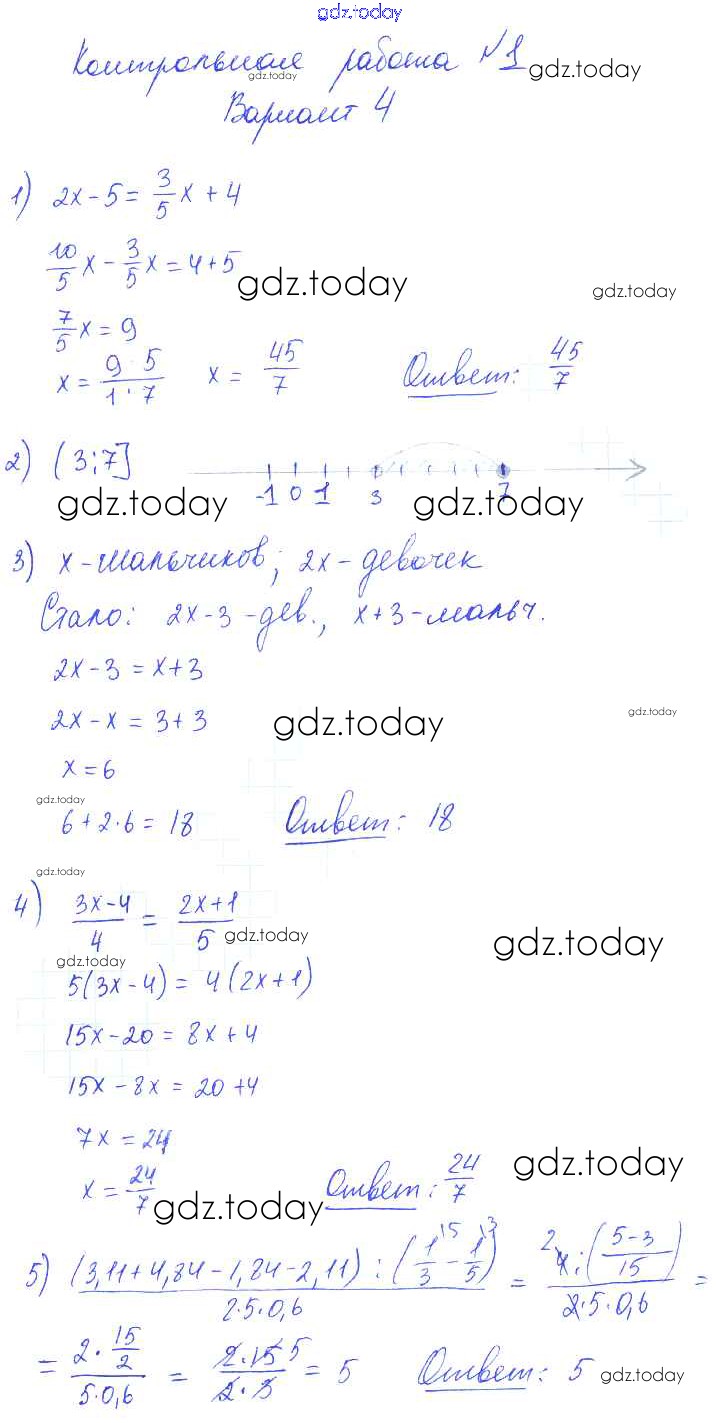 gdz.today
Контрольная работа №1 gdz.today
gdz.today
Вариант 4
1) 2x - 5 = 3/5 x + 4
10/5 x - 3/5 x = 4 + 5
gdz.today gdz.today
7/5 x = 9
x = 9·5/1·7 x = 45/7 Ответ: 45/7
2) (3;7] -1 0 1 3 7
gdz.today gdz.today
3) x - мальчиков; 2x - девочек
Стало: 2x - 3 - дев., x + 3 - мальч.
2x - 3 = x + 3
2x - x = 3 + 3 gdz.today gdz.today
x = 6
gdz.today
6 + 2·6 = 18 Ответ: 18
gdz.today
4) 3x-4/4 = 2x+1/5 gdz.today gdz.today
gdz.today
5(3x - 4) = 4(2x + 1)
15x - 20 = 8x + 4
15x - 8x = 20 + 4
7x = 24
x = 24/7 gdz.today Ответ: 24/7 gdz.today
5) (3,11 + 4,84 - 1,84 - 2,11) : (1/3 - 1/5) / 2·5·0,6 = 4 : (5-3/15) / 2·5·0,6 =
= 2·15/2 / 5·0,6 = 2·15/2·3 = 5 Ответ: 5 gdz.today